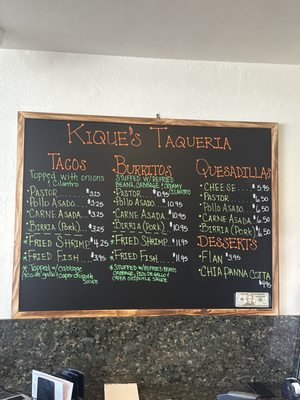 Kique's Taqueria
Tacos
Topped with onions
& Cilantro
Pastor....$3.25
Pollo Asado...$3.25
Carne Asada...$3.25
Birria (Pork)...$3.25
Fried Shrimp $4.25
Fried Fish....$3.95
Topped w/cabbage
pico de gallo & caper chipotle
sauce
Burritos
Stuffed w/refried
beans, cabbage & creamy
cilantro
Pastor....$10.95
Pollo Asado...$10.95
Carne Asada...$10.95
Birria (Pork)...$10.95
Fried Shrimp..$11.95
Fried Fish....$11.95
Stuffed w/refried
beans, cabbage, pico de gallo &
caper chipotle sauce
Quesadillas
Cheese....$5.95
Pastor....$6.50
Pollo Asado..$6.50
Carne Asada..$6.50
Birria (Pork)$6.50
Desserts
Flan $3.95
Chia Panna Cotta
$4.95